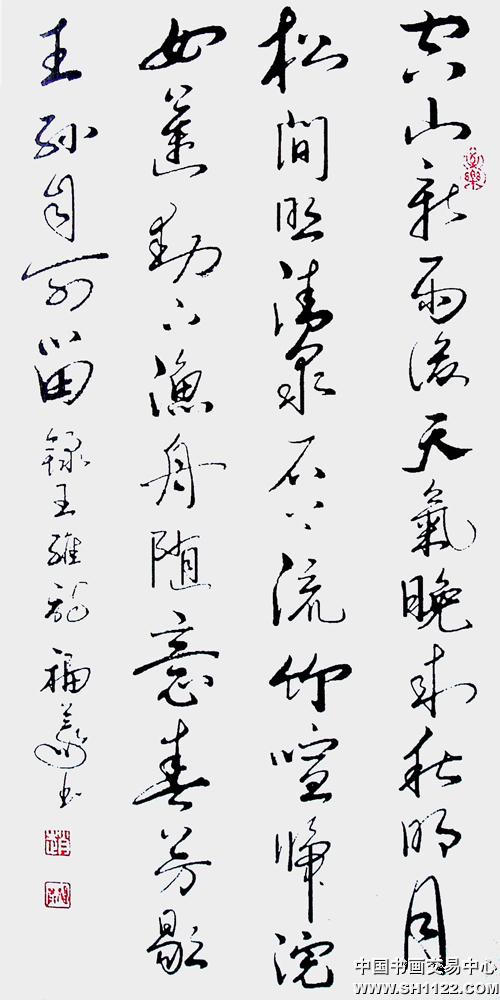 空山新雨後天氣晚來秋明月
松間照清泉石上流竹喧歸浣
女蓮動下漁舟随意春芳歇
王孫自可留 錄王維詩 福書
中国书画交易中心
www.SH1122.com